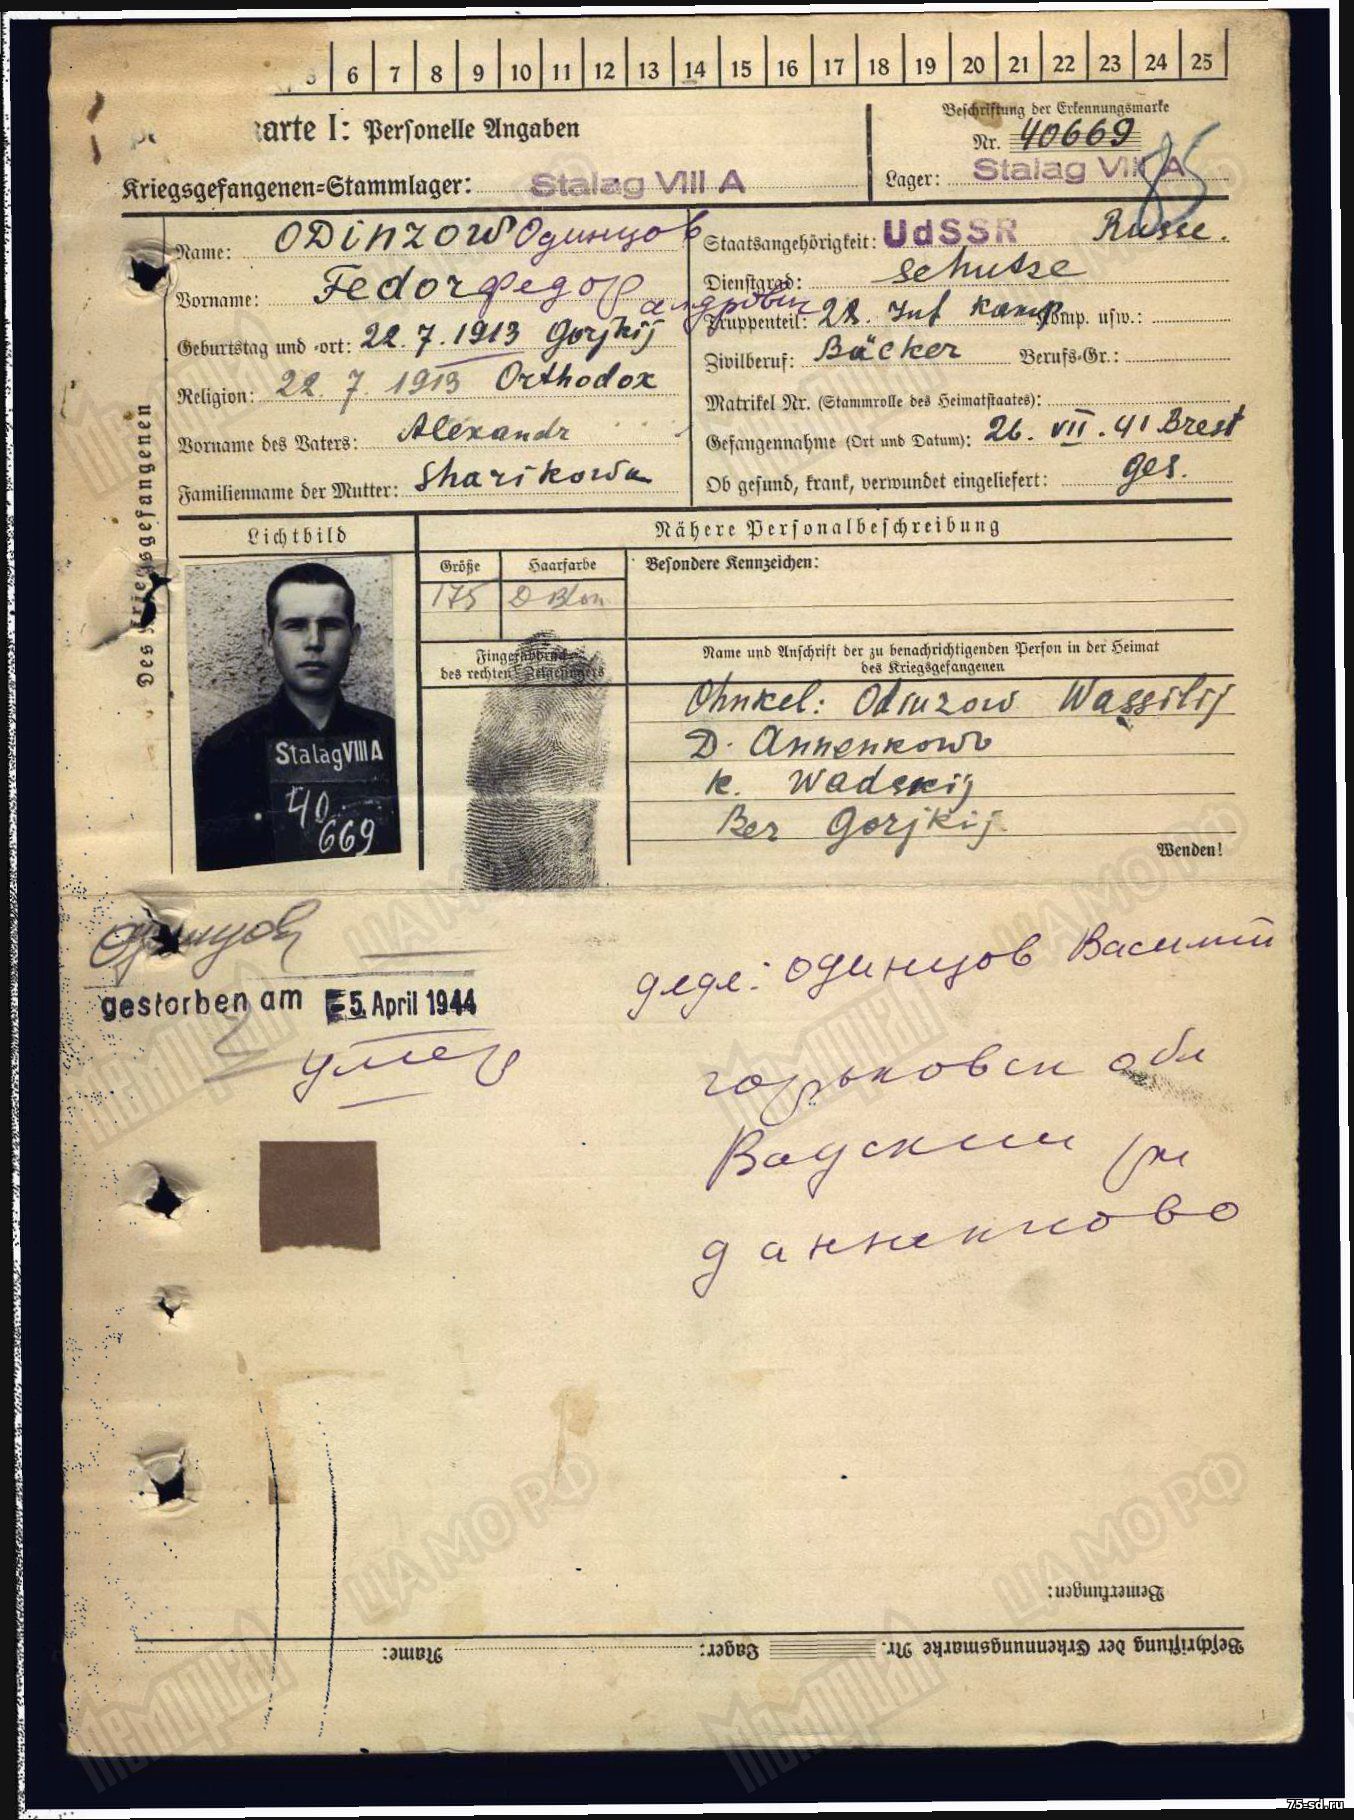 6 7 8 9 10 11 12 13 14 15 16 17 18 19 20 21 22 23 24 25
arte I: Personelle Angaben
Beschriftung der Erkennungsmarke
Nr. 40669
Kriegsgefangenen=Stammlager: Stalag VIII A
Lager: Stalag VIII A
85
Des Kriegsgefangenen
Name: ODinzow Одинцов
Vorname: Fedor Федор алдрович
Geburtstag und -ort: 22.7.1913 Gorjkij
Religion: 22.7.1913 Orthodox
Vorname des Vaters: Alexandr
Familienname der Mutter: Sharikowa
Staatsangehörigkeit: UdSSR Russe.
Dienstgrad: Schutse
Truppenteil: 22. Inf Kamp Komp. usw.:
Zivilberuf: Bäcker Berufs-Gr.:
Matrikel Nr. (Stammrolle des Heimatstaates):
Gefangennahme (Ort und Datum): 26. VII. 41 Brest
Ob gesund, krank, verwundet eingeliefert: ges.
Lichtbild
Nähere Personalbeschreibung
Größe
Haarfarbe
Besondere Kennzeichen:
175
D Blon
Fingerabdruck
des rechten Zeigefingers
Stalag VIII A
40
669
Name und Anschrift der zu benachrichtigenden Person in der Heimat
des Kriegsgefangenen
Ohnkel: Odinzow Wassilij
D. Annenkowo
K. Wadskij
Ber Gorjkij
Wenden!
Одинцов
gestorben am -5. April 1944
умер
дядя: Одинцов Василий
горьковск обл
Вадский рн
д анненково
Bemerkungen:
Beschriftung der Erkennungsmarke Nr. Lager: Name:
МЕМОРИАЛ
ЦАМО РФ
75-sd.ru